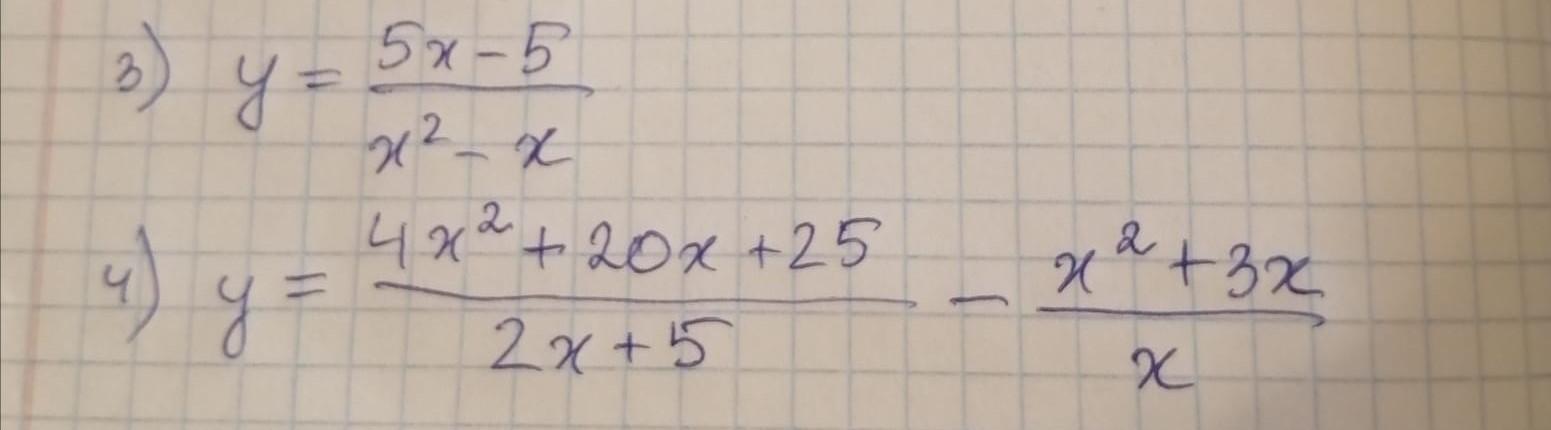 3) y = (5x - 5)/(x² - x)
4) y = (4x² + 20x + 25)/(2x + 5) - (x² + 3x)/x